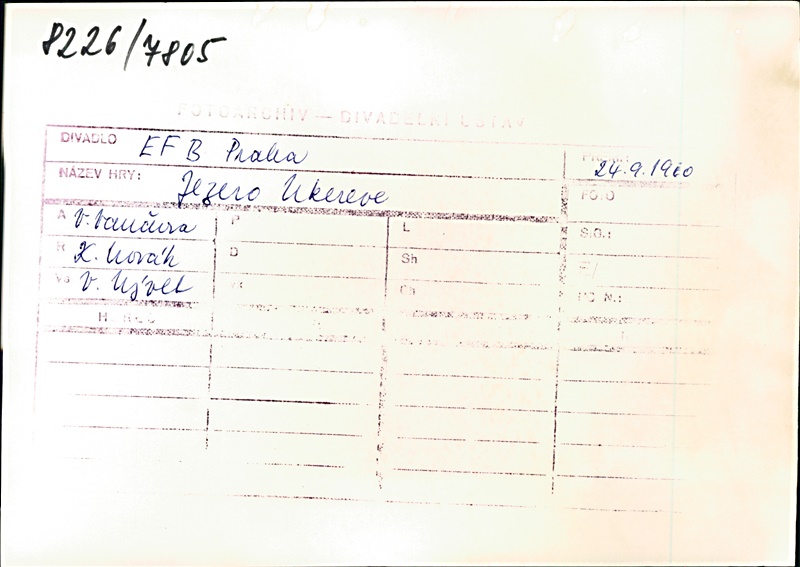 8226/7805
FOTOARCHIV — DIVADELNÍ ÚSTAV
DIVADLO EFB Praha
24.9.1960
NÁZEV HRY: Jezero Ukereve
FOTO
A V. Vančura P L S.O.:
R K. Novák D Sh
Vs V. Nývlt